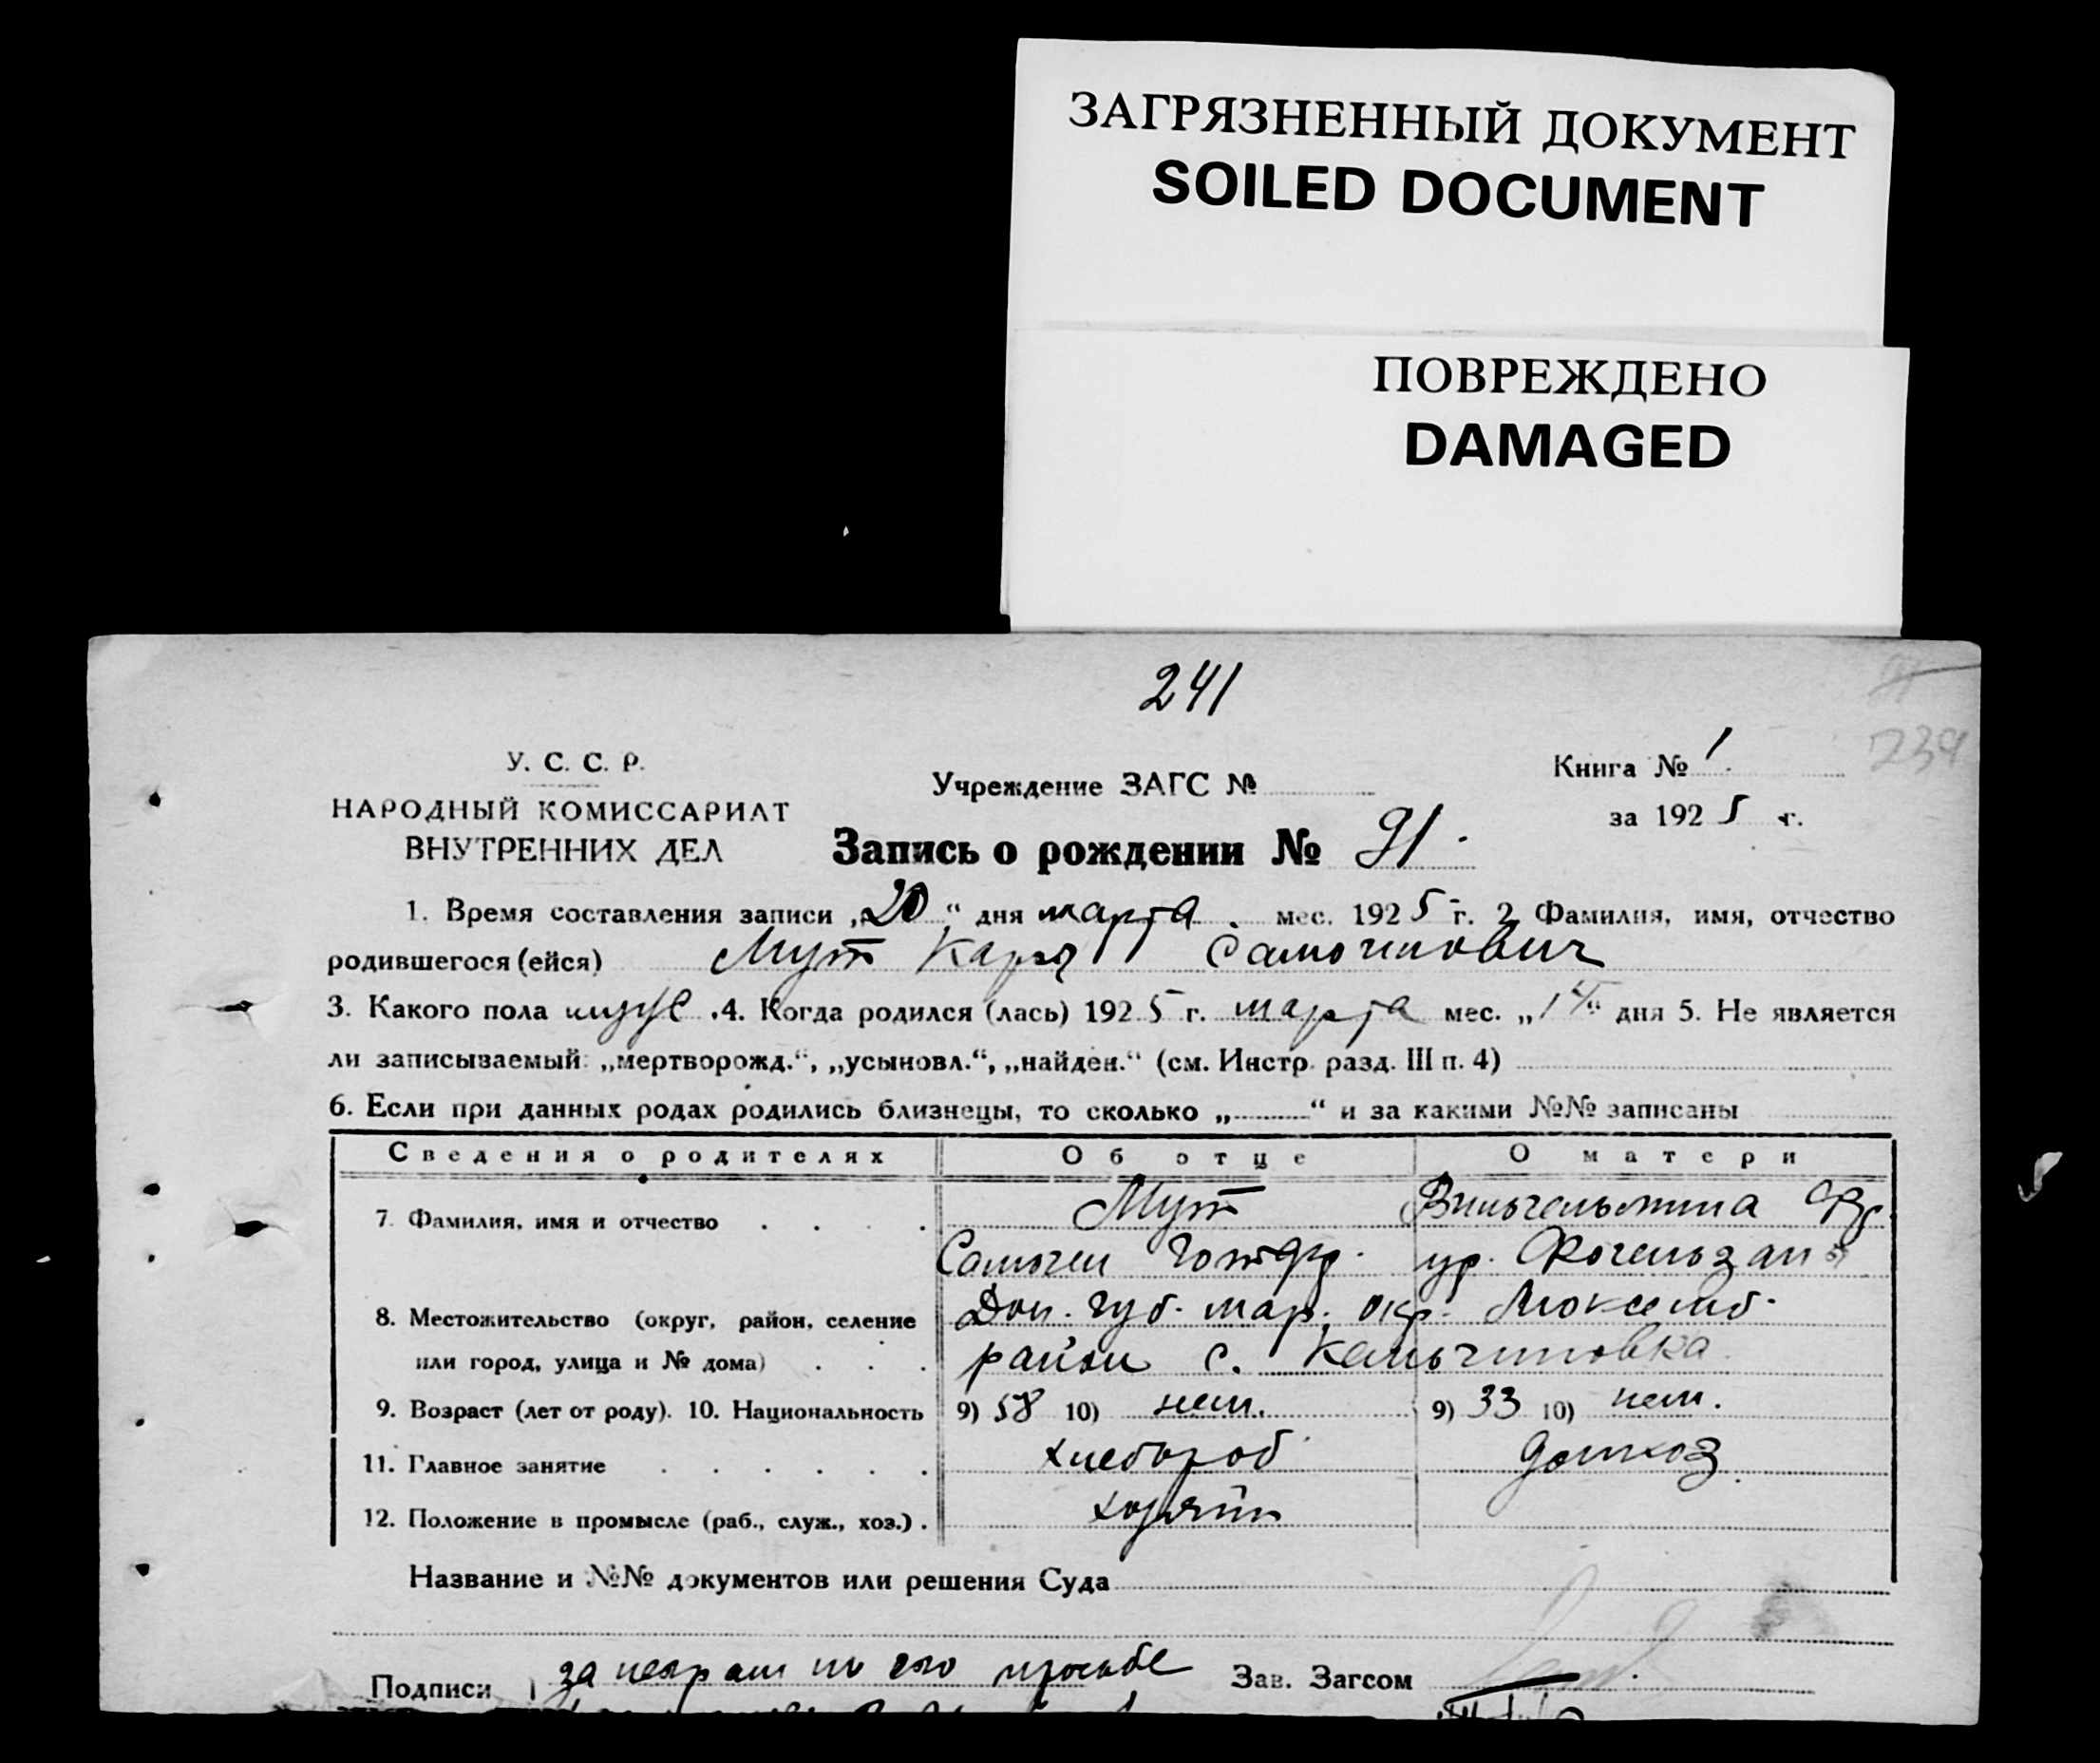 ЗАГРЯЗНЕННЫЙ ДОКУМЕНТ
SOILED DOCUMENT
ПОВРЕЖДЕНО
DAMAGED
241
239
У. С. С. Р.
НАРОДНЫЙ КОМИССАРИАТ
ВНУТРЕННИХ ДЕЛ
Учреждение ЗАГС №
Книга № 1
за 1925 г.
Запись о рождении № 91.
1. Время составления записи „20“ дня марта мес. 1925 г. 2 Фамилия, имя, отчество
родившегося (ейся) Мут Карл
3. Какого пола муж .4. Когда родился (лась) 1925 г. марта мес. „1 “ дня 5. Не является
ли записываемый: „мертворожд.“, „усыновл.“, „найден.“ (см. Инстр. разд. III п. 4)
6. Если при данных родах родились близнецы, то сколько „ “ и за какими №№ записаны
Сведения о родителях Об отце О матери
7. Фамилия, имя и отчество Мут Вильгельмина Фр.
ур.
8. Местожительство (округ, район, селение Дон. губ. мар. окр. Люксемб.
или город, улица и № дома) район с. Кельчиновка
9. Возраст (лет от роду). 10. Национальность 9) 58 10) нем. 9) 33 10) нем.
11. Главное занятие хлебороб домхоз.
12. Положение в промысле (раб., служ., хоз.) . хозяин
Название и №№ документов или решения Суда
Подписи за неграм по его просьбе Зав. Загсом